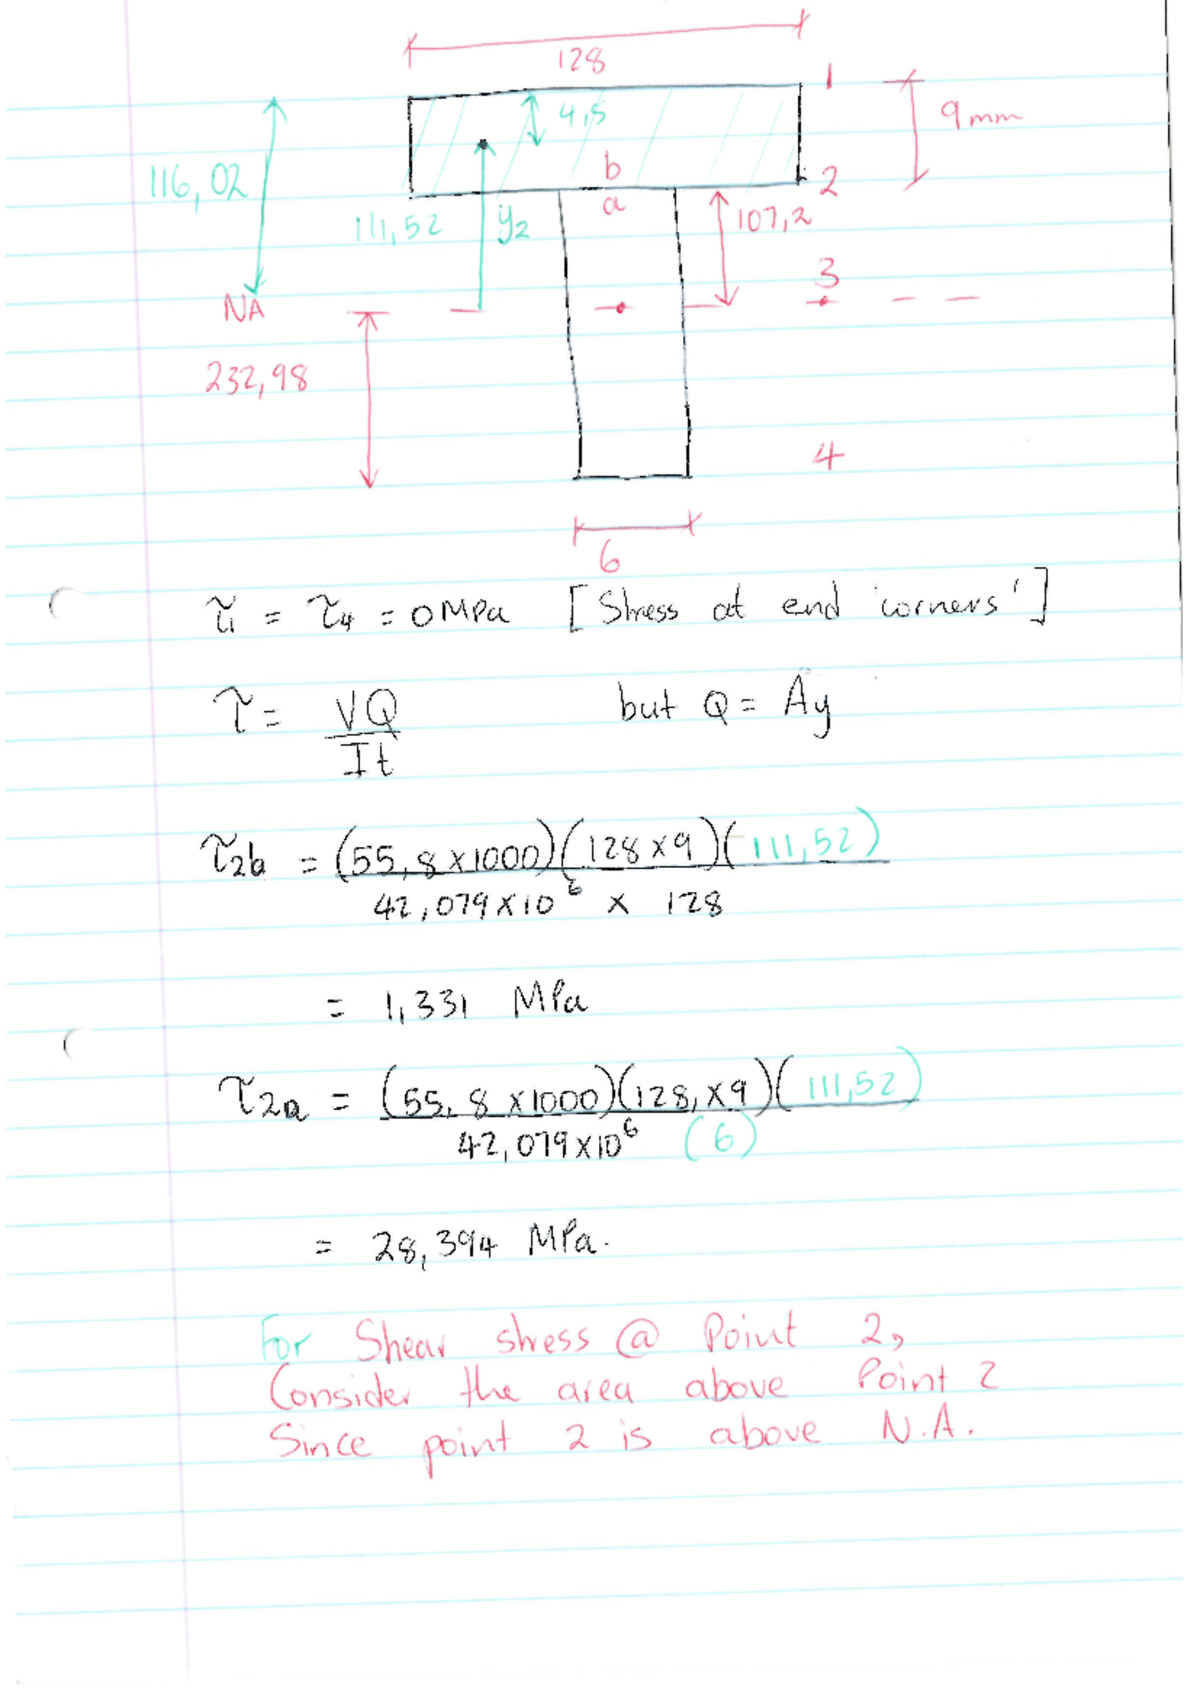 128
1
4,5
9mm
116,02
b
2
a
111,52
y2
107,2
3
NA
232,98
4
6
τ1 = τ4 = 0 MPa [Stress at end 'corners']
τ = VQ / It but Q = Ay
τ2b = (55,8 x 1000)(128 x 9)(111,52)
42,079 x 10^6 x 128
= 1,331 MPa
τ2a = (55,8 x 1000)(128, x 9)(111,52)
42,079 x 10^6 (6)
= 28,394 MPa.
For Shear stress @ Point 2,
Consider the area above Point 2
Since point 2 is above N.A.